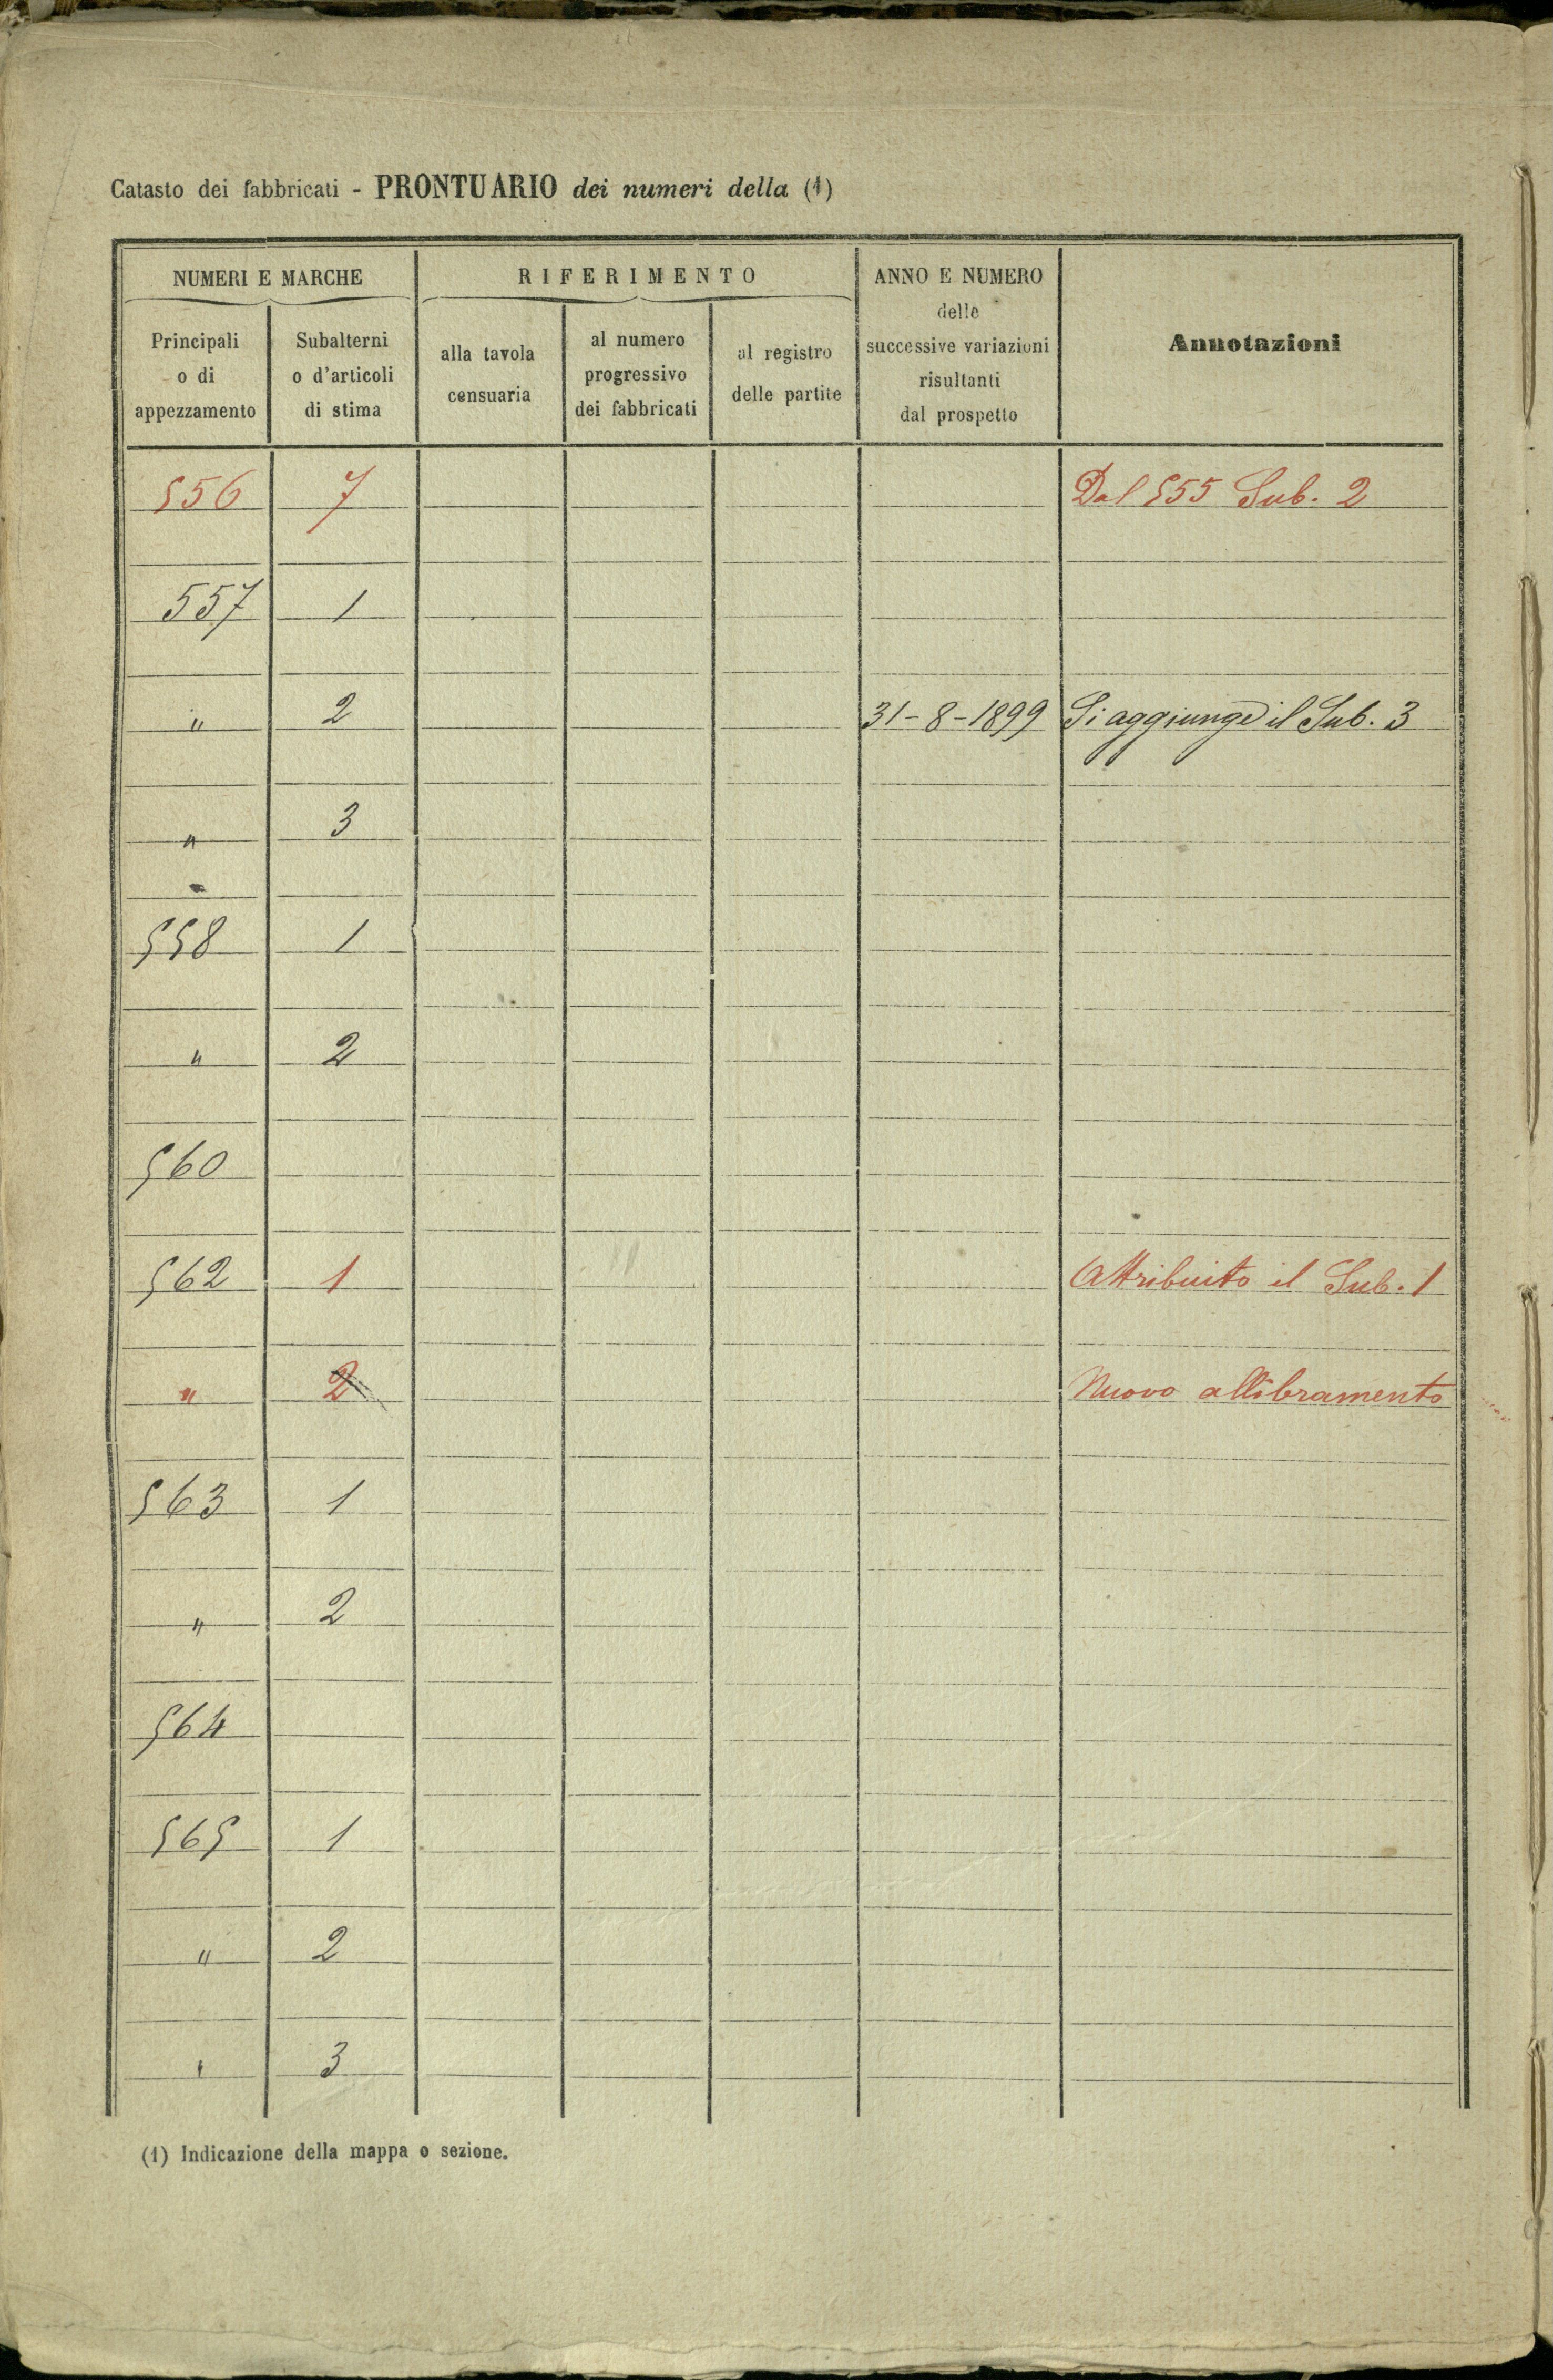 Catasto dei fabbricati - PRONTUARIO dei numeri della (1)
NUMERI E MARCHE
RIFERIMENTO
ANNO E NUMERO
delle
successive variazioni
risultanti
dal prospetto
Annotazioni
Principali
o di
appezzamento
Subalterni
o d'articoli
di stima
alla tavola
censuaria
al numero
progressivo
dei fabbricati
al registro
delle partite
556 7 Dal 555 Sub. 2
557 1
" 2 31-8-1899 Si aggiunge il Sub. 3
" 3
558 1
" 2
560
562 1 Attribuito il Sub. 1
" 2 Nuovo allibramento
563 1
" 2
564
565 1
" 2
" 3
(1) Indicazione della mappa o sezione.